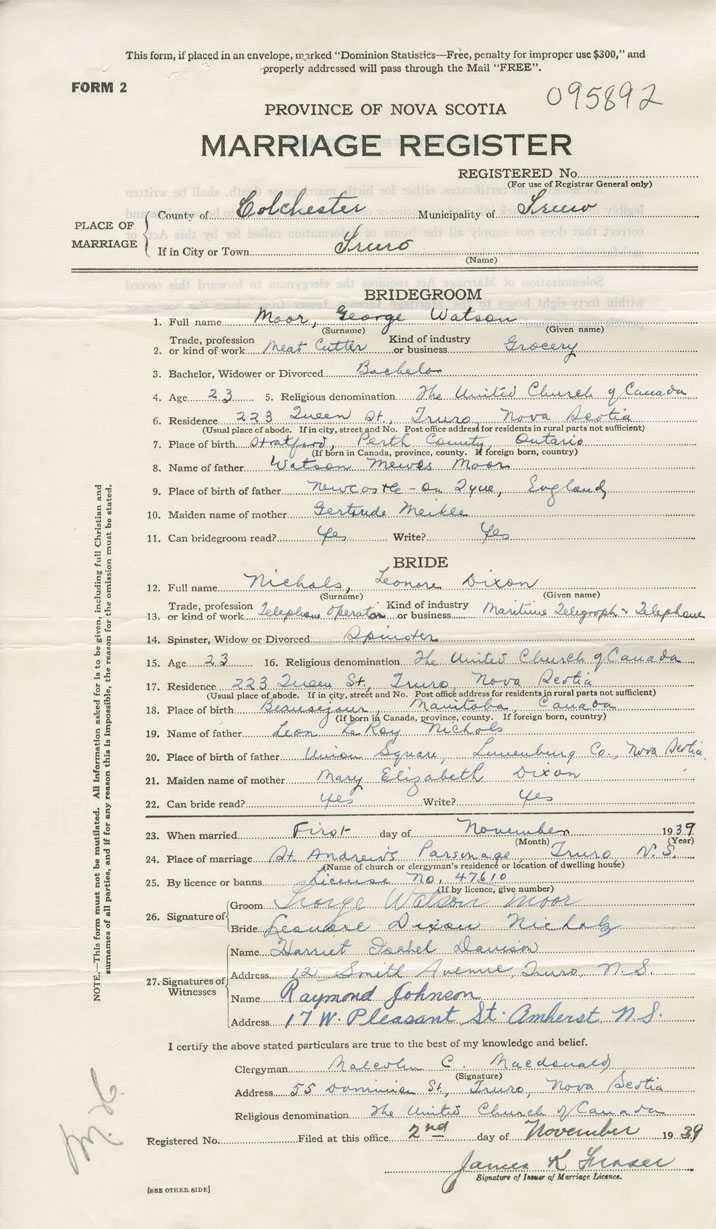 This form, if placed in an envelope, marked "Dominion Statistics—Free, penalty for improper use $300," and
properly addressed will pass through the Mail "FREE".
FORM 2
095892
PROVINCE OF NOVA SCOTIA
MARRIAGE REGISTER
REGISTERED No.
(For use of Registrar General only)
PLACE OF MARRIAGE
County of Colchester Municipality of Truro
If in City or Town Truro
(Name)
BRIDEGROOM
1. Full name Moor, George Watson
(Surname) (Given name)
2. Trade, profession or kind of work Meat Cutter Kind of industry or business Grocery
3. Bachelor, Widower or Divorced Bachelor
4. Age 23 5. Religious denomination The United Church of Canada
6. Residence 223 Queen St., Truro, Nova Scotia
(Usual place of abode. If in city, street and No. Post office address for residents in rural parts not sufficient)
7. Place of birth Stratford, Perth County, Ontario
(If born in Canada, province, county. If foreign born, country)
8. Name of father Watson Mewes Moor
9. Place of birth of father Newcastle-On Tyne, England
10. Maiden name of mother Gertrude Meikle
11. Can bridegroom read? Yes Write? Yes
BRIDE
12. Full name Nichols, Leonore Dixon
(Surname) (Given name)
13. Trade, profession or kind of work Telephone Operator Kind of industry or business Maritime Telegraph & Telephone
14. Spinster, Widow or Divorced Spinster
15. Age 23 16. Religious denomination The United Church of Canada
17. Residence 223 Queen St., Truro, Nova Scotia
(Usual place of abode. If in city, street and No. Post office address for residents in rural parts not sufficient)
18. Place of birth Beausejour, Manitoba, Canada
(If born in Canada, province, county. If foreign born, country)
19. Name of father Leon LeRoy Nichols
20. Place of birth of father Union Square, Lunenburg Co., Nova Scotia
21. Maiden name of mother Mary Elizabeth Dixon
22. Can bride read? Yes Write? Yes
23. When married First day of November 1939
(Month) (Year)
24. Place of marriage St. Andrew's Parsonage, Truro N.S.
(Name of church or clergyman's residence or location of dwelling house)
25. By licence or banns License No. 47610
(If by licence, give number)
26. Signature of
Groom George Watson Moor
Bride Leonore Dixon Nichols
27. Signatures of Witnesses
Name Harriet Isabel Davison
Address 12 Smith Avenue, Truro, N.S.
Name Raymond Johnson
Address 17 W. Pleasant St. Amherst N.S.
I certify the above stated particulars are true to the best of my knowledge and belief.
Clergyman Malcolm C. Macdonald
(Signature)
Address 55 Dominion St., Truro, Nova Scotia
Religious denomination The United Church of Canada
Registered No. Filed at this office 2nd day of November 1939
James K Fraser
Signature of Issuer of Marriage Licence.
[SEE OTHER SIDE]
NOTE.—This form must not be mutilated. All information asked for is to be given, including full Christian and
surnames of all parties, and if for any reason this is impossible, the reason for the omission must be stated.